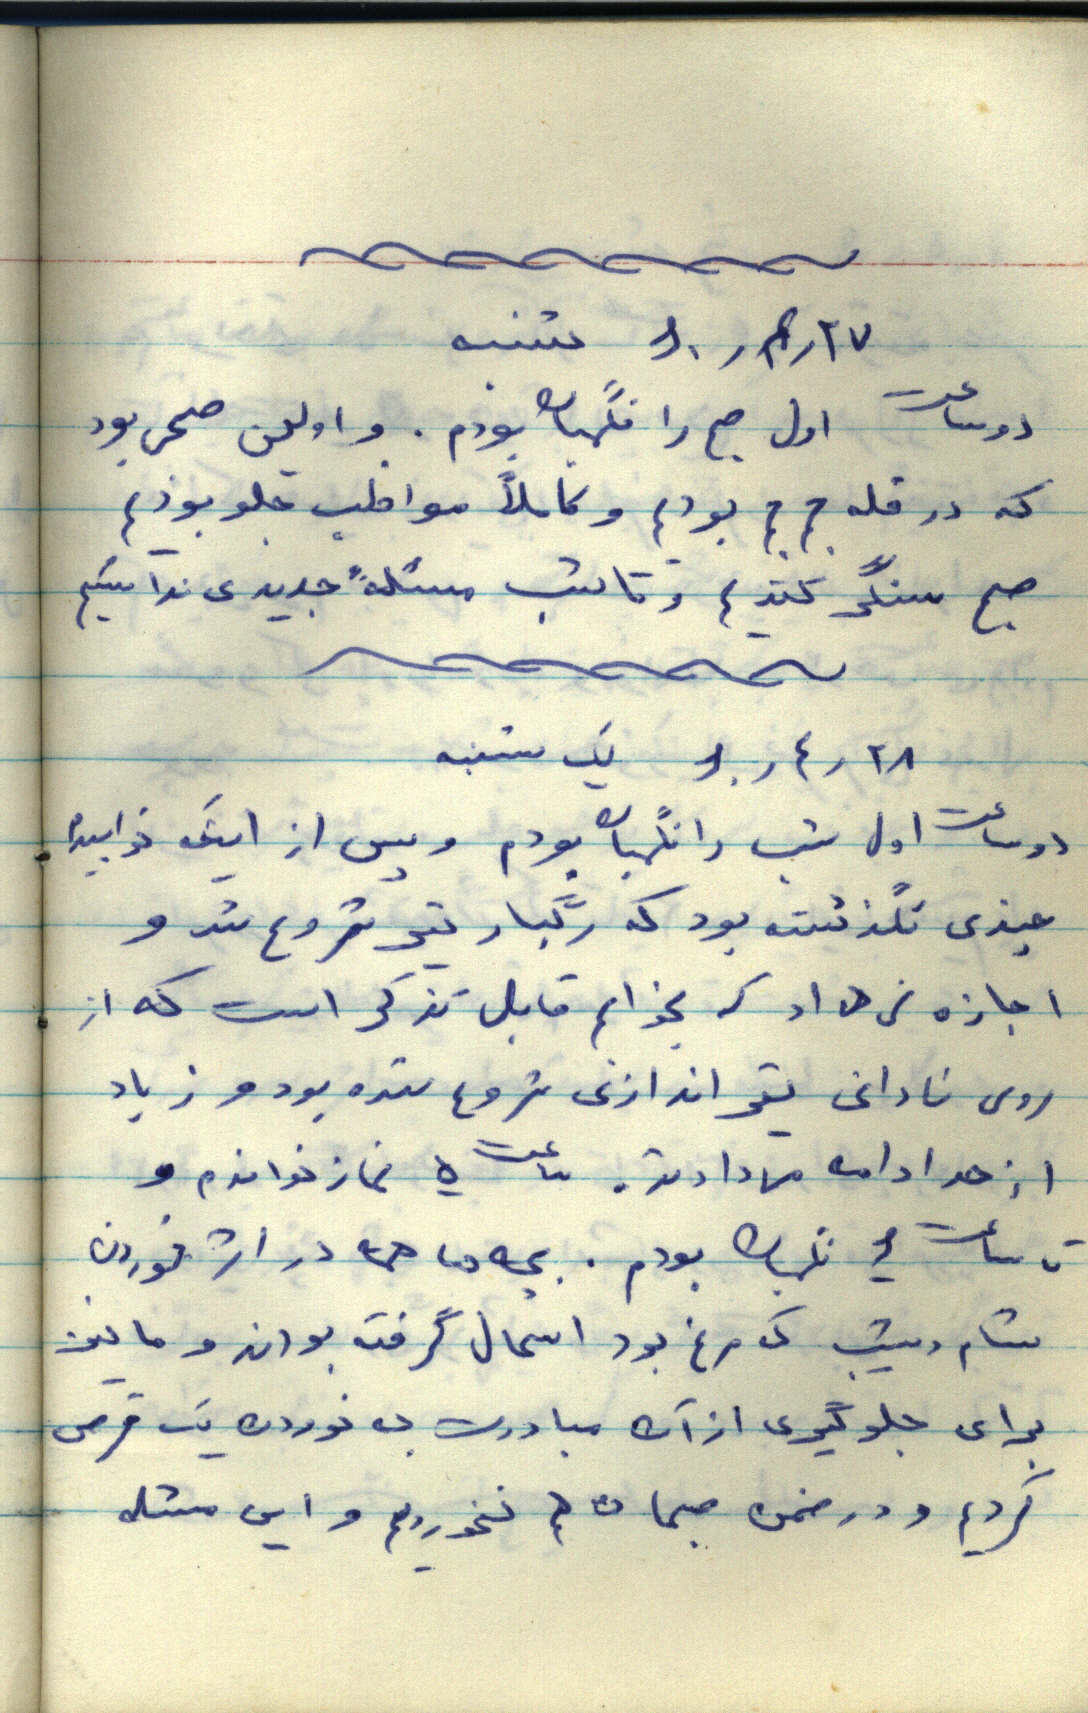 ۲۷ر۴ر۶۰ شنبه
دوساعت اول صبح را نگهبان بودم . و اولین صبحی بود
که در قله بودیم و کاملاً مواظب جلو بودیم
صبح سنگر کندیم و تا شب مسئلهٔ جدیدی نداشتیم
۲۸ر۴ر۶۰ یک شنبه
دوساعت اول شب را نگهبان بودم و پس از اینکه خوابیدم
چیزی نگذشته بود که رگبار تیر شروع شد و
اجازه نمی داد که بخوابم قابل تذکر است که از
روی نادانی تیر اندازی شروع شده بود و زیاد
از حد ادامه می دادند . ساعت ۵ نماز خواندم و
تا ساعت ۶ نگهبان بودم . بچه ها همه در اثر خوردن
شام دیشب که مرغ بود اسهال گرفته بودند و ما نیز
برای جلوگیری از آن مبادرت به خوردن یک قرص
کردیم و در ضمن صبحانه هم نخوردیم و این مسئله